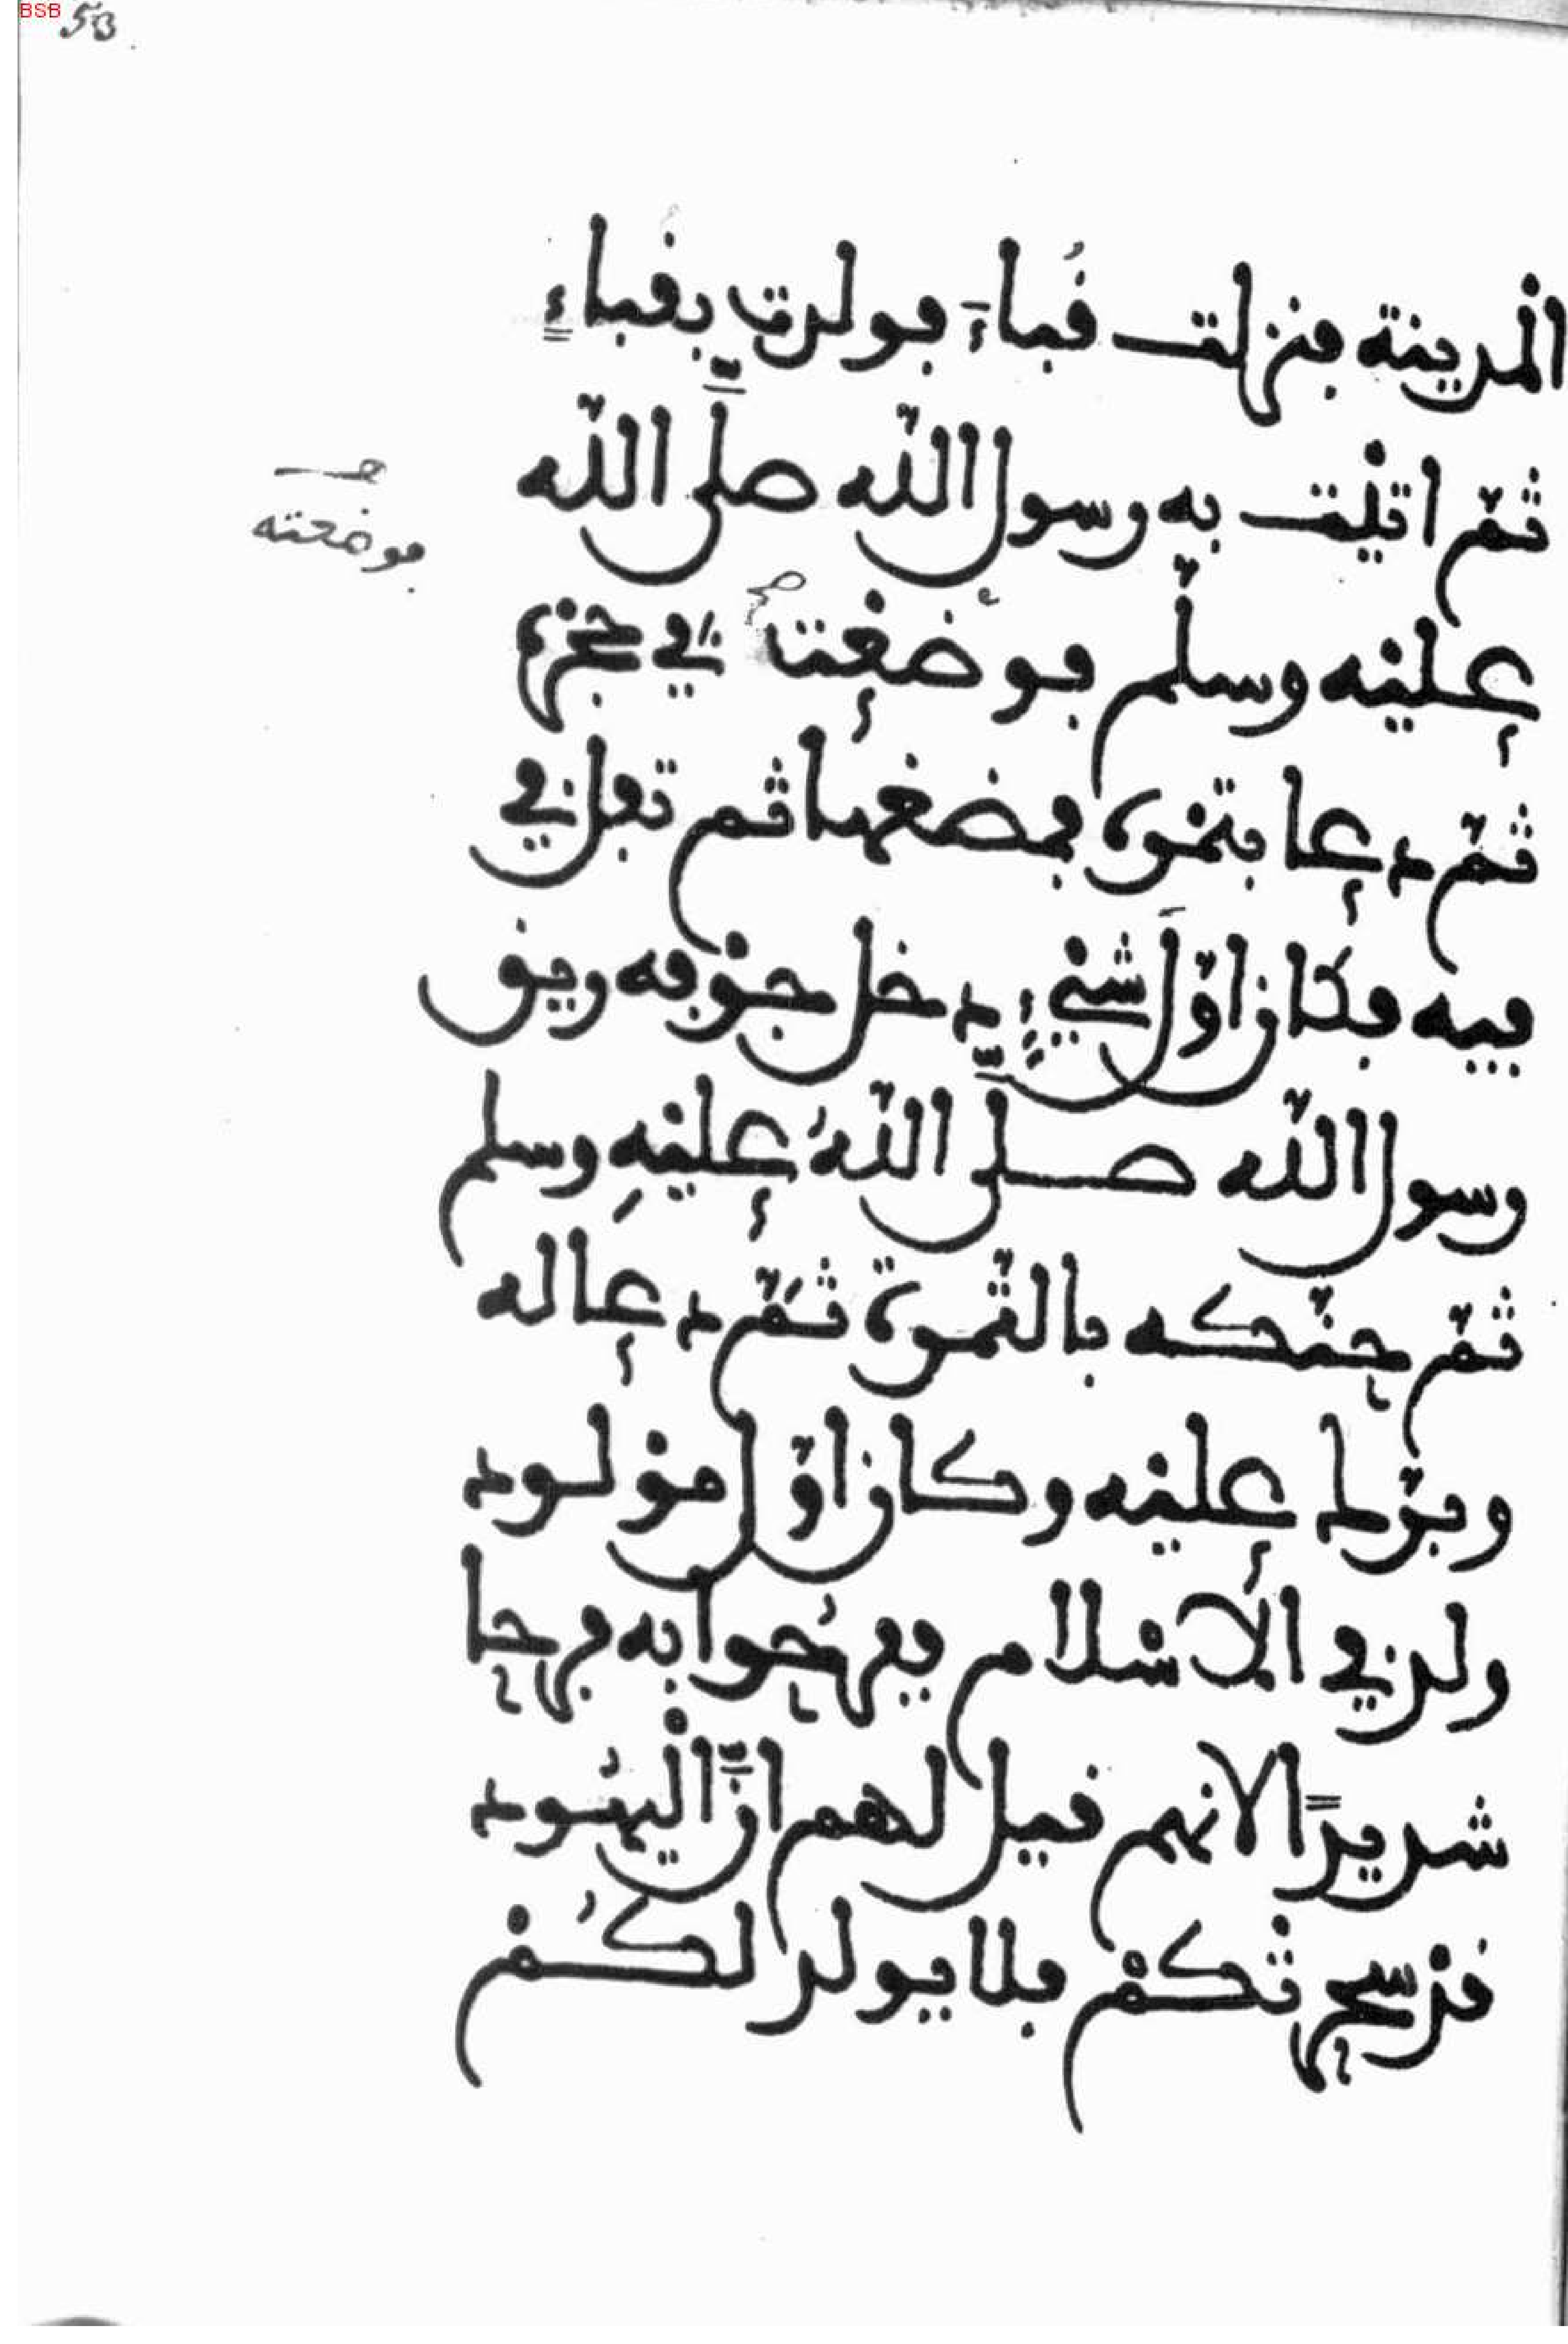 BSB 53
المدينة فنزلت قُباءً فولدت بقباءٍ
ثمّ اتيْت به رسول اللّه صلَّى اللّه
فوضعته
عليْه وسلّم فوضعْت في حجْره
ثمّ دعا بتمْرة فمضغها ثم تفل في
فيه فكان اوّلَ شيْءٍ دخل جوْفه ريق
رسول اللّه صلَّى اللّهُ عليْهِ وسلم
ثم حنّكه بالتّمرة ثمَّ دعا له
وبرّك عليْه وكان اوّل موْلود
ولد في الاسْلام ففرحُوا به فرحا
شديدًا لانهم قيل لهم انَّ الْيهُود
قدْ سحرتْكمْ فلا يولد لكُمْ